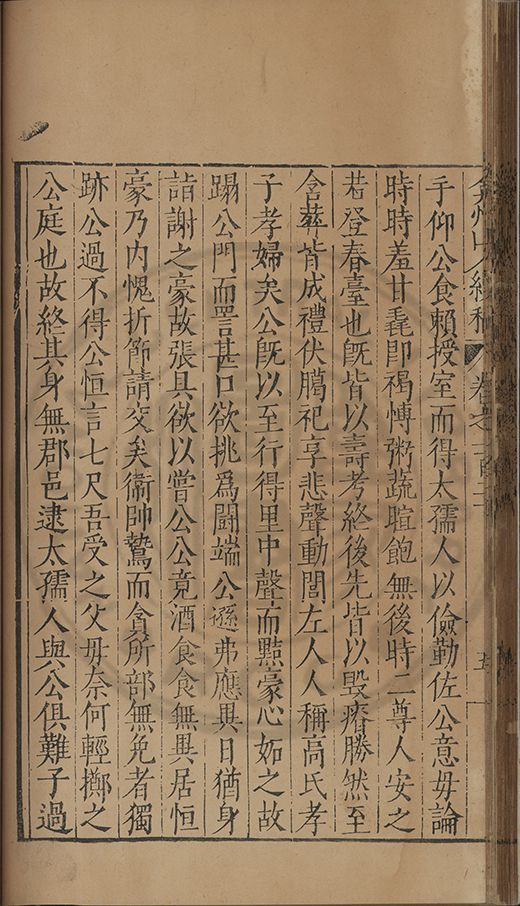 弇州山人續稿 卷之一百二十 五
手仰公食賴授室而得太孺人以儉勤佐公意毋論
時時羞甘毳即褐愽粥蔬暄飽無後時二尊人安之
若登春臺也既皆以壽考終後先皆以毀瘠勝然至
含斂皆成禮伏臈祀享悲聲動閭左人人稱高氏孝
子孝婦矣公既以至行得里中聲而黠豪心妬之故
蹋公門而詈甚口欲挑爲鬪端公遜弗應異日猶身
詣謝之豪故張具欲以嘗公公竟酒食食無異居恒
豪乃內愧折節請交矣衞帥鷙而貪所部無免者獨
跡公過不得公恒言七尺吾受之父母奈何輕擲之
公庭也故終其身無郡邑逮太孺人與公俱難子過